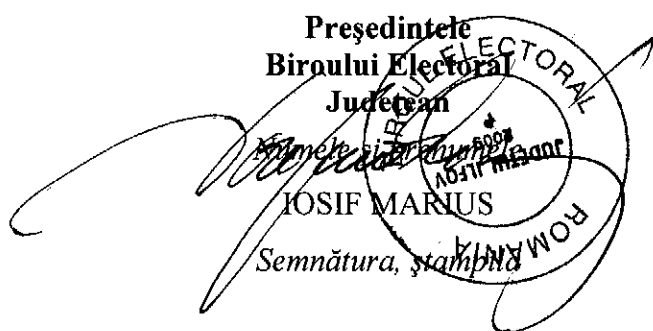 Președintele
Biroului Electoral
Județean
Numele și prenumele
IOSIF MARIUS
Semnătura, ștampila
BIROUL ELECTORAL
ROMÂNIA
JUDEȚUL ILFOV
2009